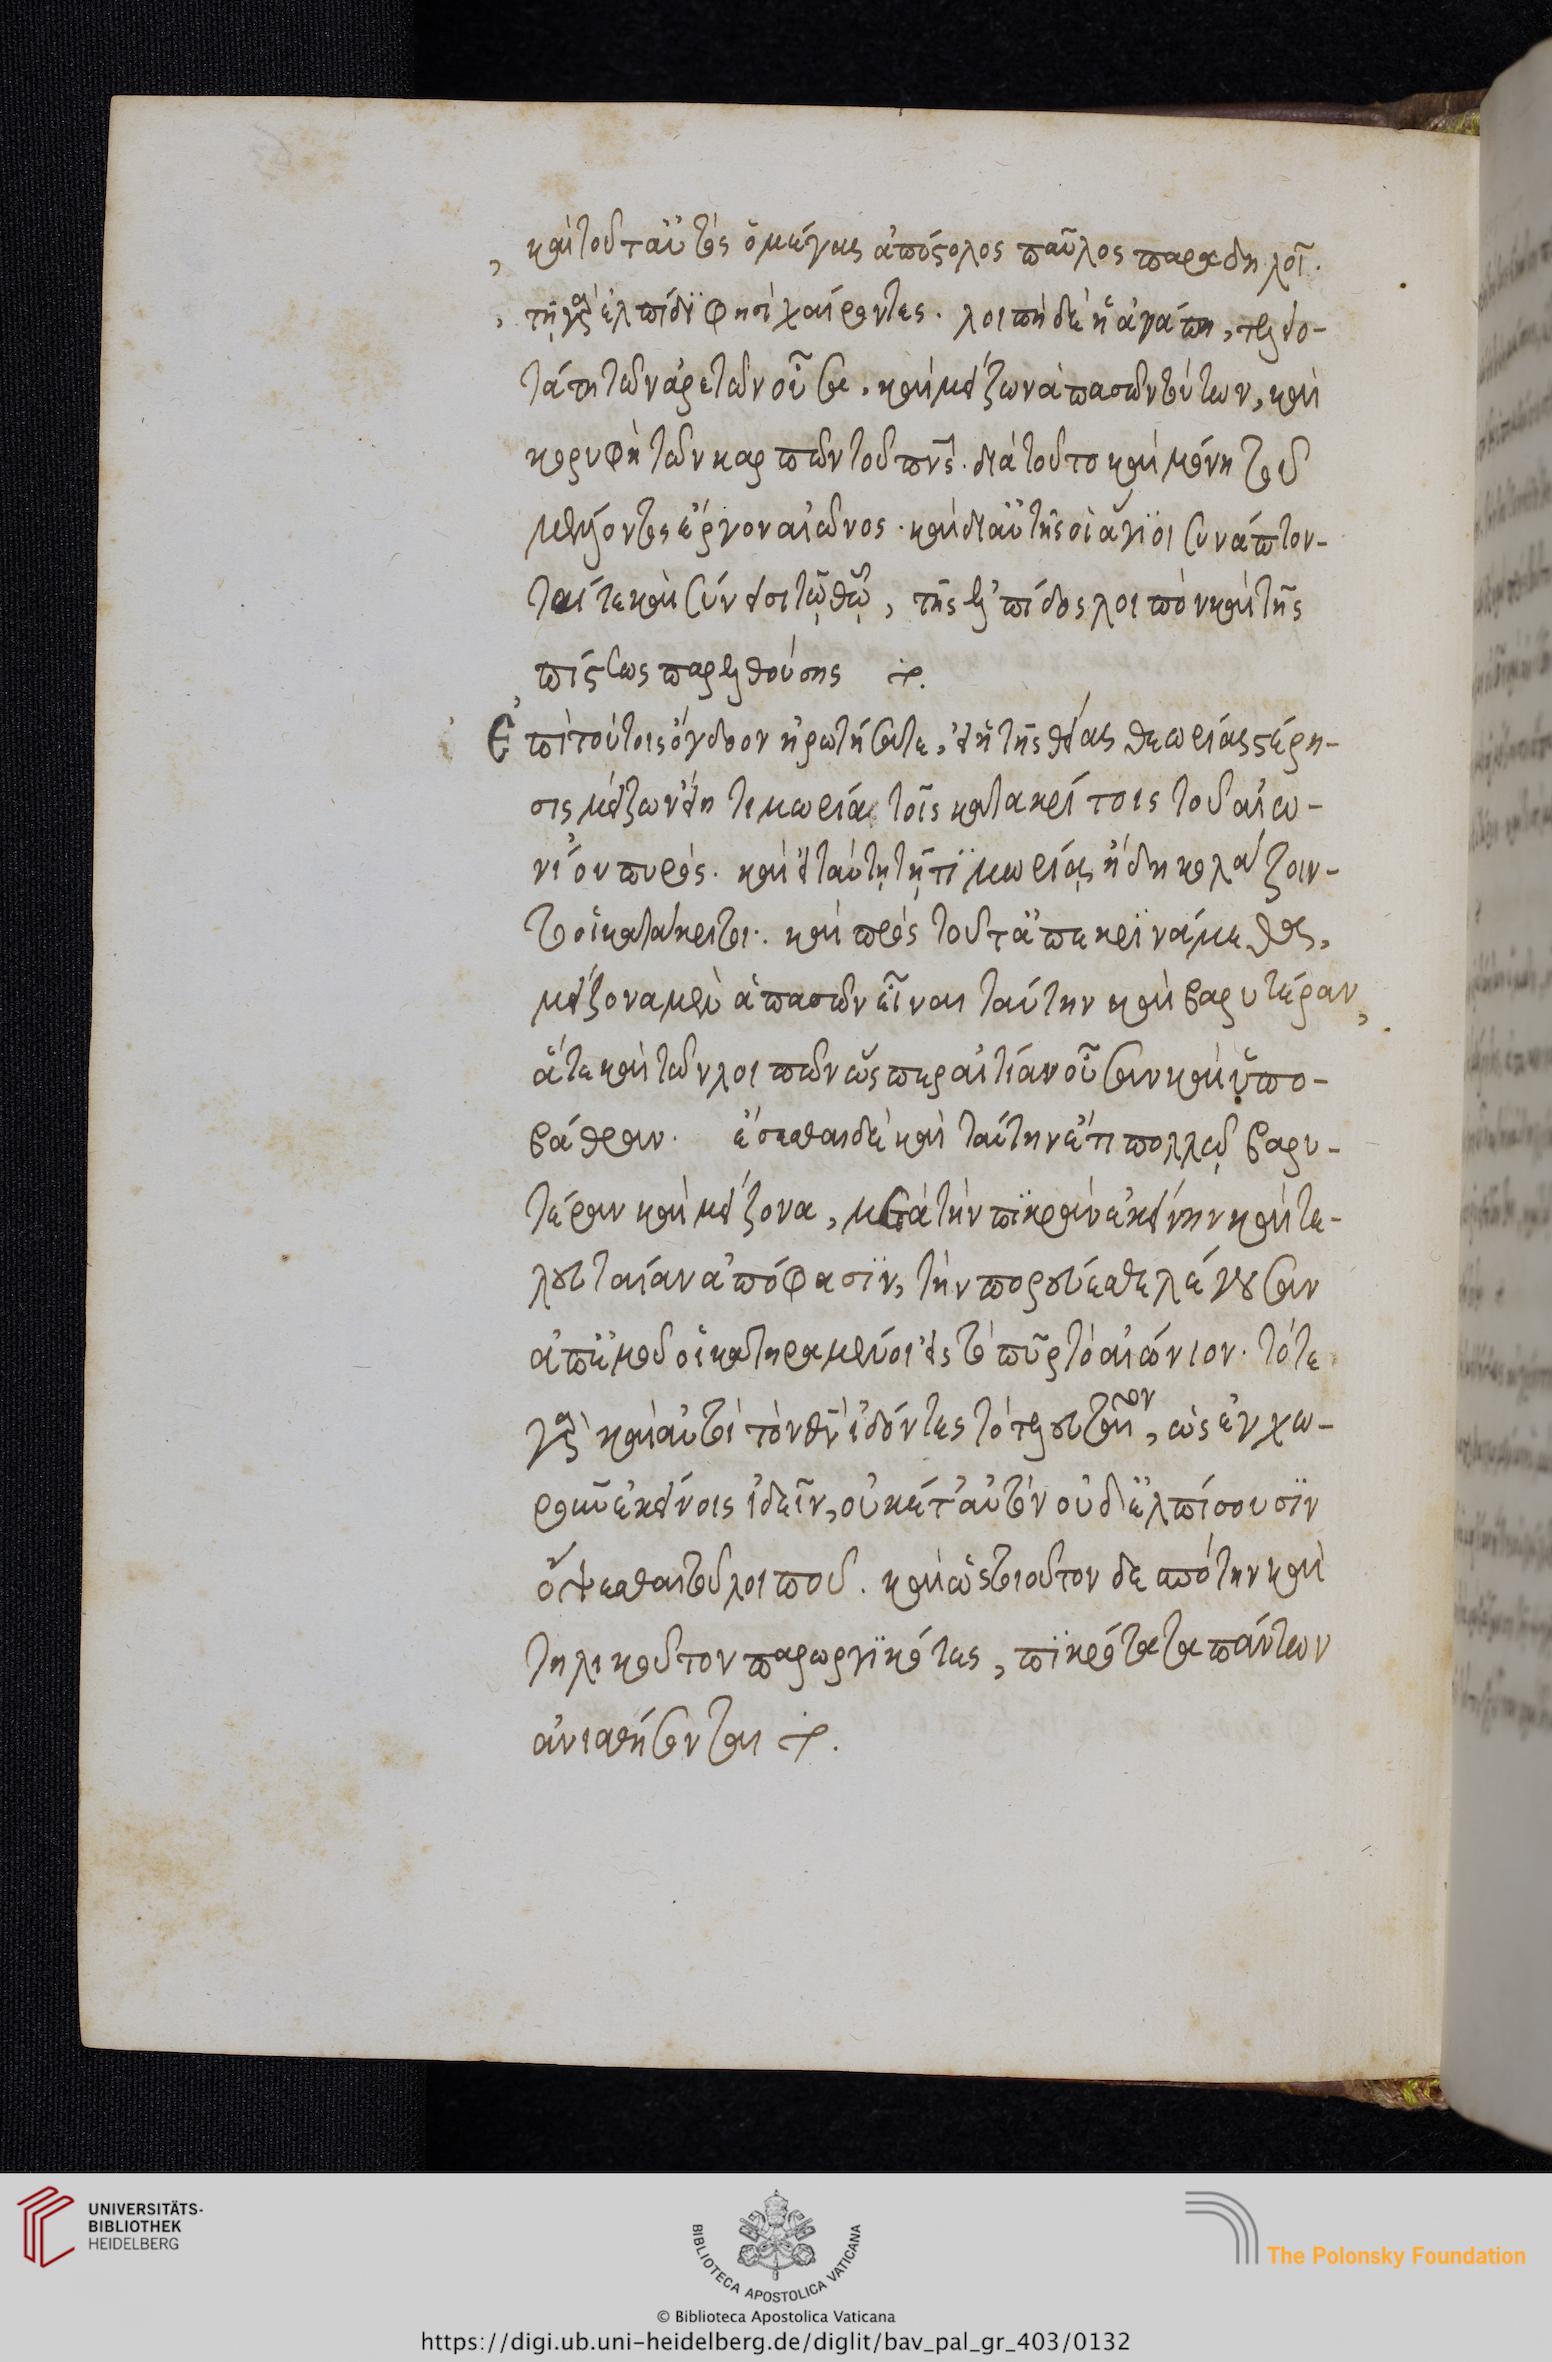 καὶ τοῦτ' αὐτὸς ὁ μέγας ἀπόστολος παῦλος παραδηλοῖ·
τῇ γὰρ ἐλπίδι φησὶ χαίροντες· λοιπὴ δὲ ἡ ἀγάπη, τελειο-
τάτη τῶν ἀρετῶν οὖσα, καὶ μείζων ἁπασῶν τούτων, καὶ
κορυφὴ τῶν καρπῶν τοῦ πνς· διὰ τοῦτο καὶ μόνη τοῦ
μέλλοντος ἔργον αἰῶνος· καὶ δι' αὐτῆς οἱ ἅγιοι συνάπτον-
ταί τε καὶ σύνεισι τῷ θῷ, τῆς ἐλπίδος λοιπὸν καὶ τῆς
πίστεως παρελθούσης
Ἐπὶ τούτοις ὄγδοον ἠρωτήσατε, εἰ ἡ τῆς θείας θεωρίας στέρη-
σις μείζων εἴη τιμωρία τοῖς κατακρίτοις τοῦ αἰω-
νίου πυρός· καὶ εἰ ταύτῃ τῇ τιμωρίᾳ ἤδη κολάζοιν-
το οἱ κατάκριτοι· καὶ πρὸς τοῦτ' ἀπεκρινάμεθα,
μείζονα μὲν ἁπασῶν εἶναι ταύτην καὶ βαρυτέραν,
ἅτε καὶ τῶν λοιπῶν ὥσπερ αἰτίαν οὖσαν καὶ ὑπο-
βάθραν· ἔσεσθαι δὲ καὶ ταύτην ἔτι πολλῷ βαρυ-
τέραν καὶ μείζονα, μετὰ τὴν πικρὰν ἐκείνην καὶ τε-
λευταίαν ἀπόφασιν, τὴν πορεύεσθε λέγουσαν
ἀπ' ἐμοῦ οἱ κατηραμένοι εἰς τὸ πῦρ τὸ αἰώνιον· τότε
γὰρ καὶ αὐτοὶ τὸν θν ἰδόντες τὸ τελευταῖον, ὡς ἐγχω-
ροῦν ἐκείνοις ἰδεῖν, οὐκέτ' αὐτὸν οὐδ' ἐλπίσουσιν
ὄψεσθαι τοῦ λοιποῦ· καὶ ὡς τοιοῦτον δεσπότην καὶ
τηλικοῦτον παρωργικότες, πικρότατα πάντων
ἀνιαθήσονται
UNIVERSITÄTS-
BIBLIOTHEK
HEIDELBERG
BIBLIOTECA APOSTOLICA VATICANA
The Polonsky Foundation
© Biblioteca Apostolica Vaticana
https://digi.ub.uni-heidelberg.de/diglit/bav_pal_gr_403/0132